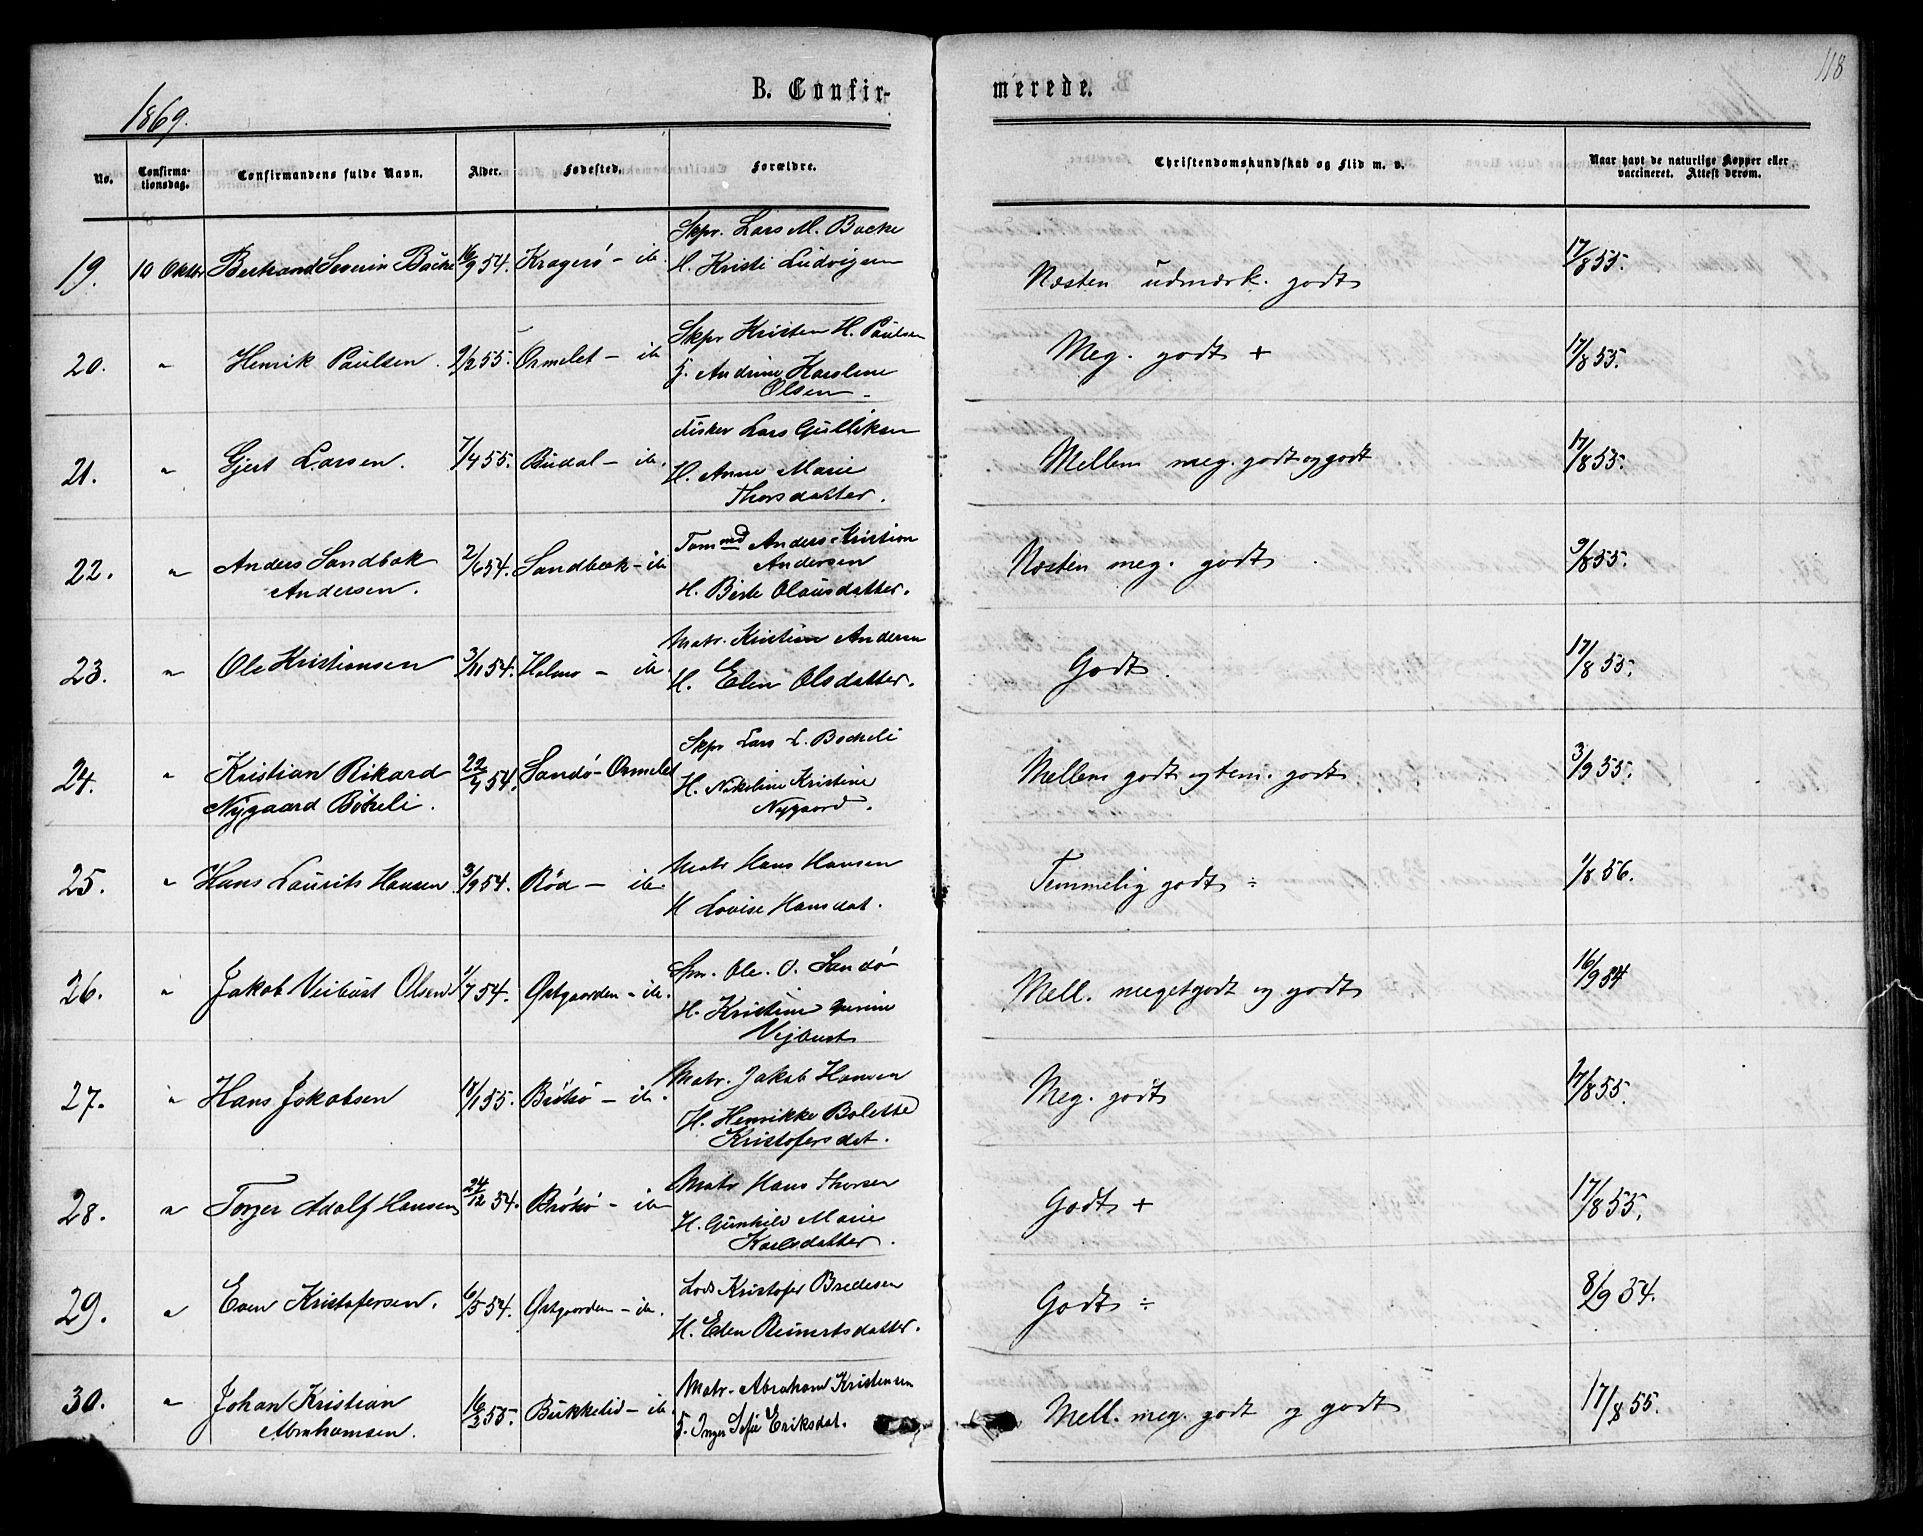 118
1869.
B. Confir-
merede.
No.
Confirma-
tionsdag.
Confirmandens fulde Navn.
Alder.
Fødested.
Forældre.
Christendomskundskab og Flid m. v.
Naar havt de naturlige Kopper eller
vaccineret. Attest derom.
Skpr. Lars M. Backe
19. 10 Oktbr Bertrand Severin Backe 16/9 54. Kragerø - ib. H. Kristi Ludvigsen Næsten udmærk. godt 17/8 55.
Skpr Kristen H. Paulsen
20. " Henrik Paulsen. 9/2 55. Ormelet - ib F. Andrine Karoline Meg. godt + 17/8 55.
Olsen
fisker Lars Gulliksen
21. " Gjert Larsen. 7/4 55. Budal - ib. H. Anne Marie Mellem meg. godt og godt 17/8 55.
Thorsdatter.
Tømmd Anders Kristian
22. " Anders Sandbæk 2/6 54. Sandbæk - ib Andersen Næsten meg. godt 9/8 55.
Andersen. H. Berte Olausdatter.
Matr. Kristian Andersen
23. " Ole Kristiansen 3/11 54. Holmo - ib. H. Elen Olsdatter. Godt 17/8 55.
Skpr Lars L. Bøkeli
24. " Kristian Rikard 22/7 54. Sandø - Ormelet H. Nikoline Kristine Mellem godt og tem. godt 3/9 55.
Nygaard Bøkeli. Nygaard.
Matr Hans Hansen
25. " Hans Laurits Hansen 3/9 54. Rød - ib H Lovise Hansdat. Temmelig godt ÷ 9/8 56.
Spm. Ole. O. Sandø
26. " Jakob Veibust Olsen 1/7 54. Østgaarden - ib. H. Kristine Gurine Mell. megetgodt og godt 16/9 54
Vejbust
Matr. Jakob Hansen
27. " Hans Jakobsen 18/1 55. Brøtsø - ib. H. Henrikke Bolette Meg. godt 17/8 55.
Kristofersdat.
Matr Hans Thorsen
28. " Torger Adolf Hansen 24/12 54. Brøtsø - ib H. Gunhild Marie Godt + 17/8 55.
Karlsdatter.
Lods Kristofer Bredesen
29. " Even Kristofersen. 6/5 54. Østgaarden - ib. H. Elen Reinertsdatter. Godt ÷ 8/9 54.
Matr. Abraham Kristensen
30. " Johan Kristian 16/3 55. Bukkelid - ib. F. Inger Sofie Eriksdat. Mell. meg. godt og godt 17/8 55.
Abrahamsen.